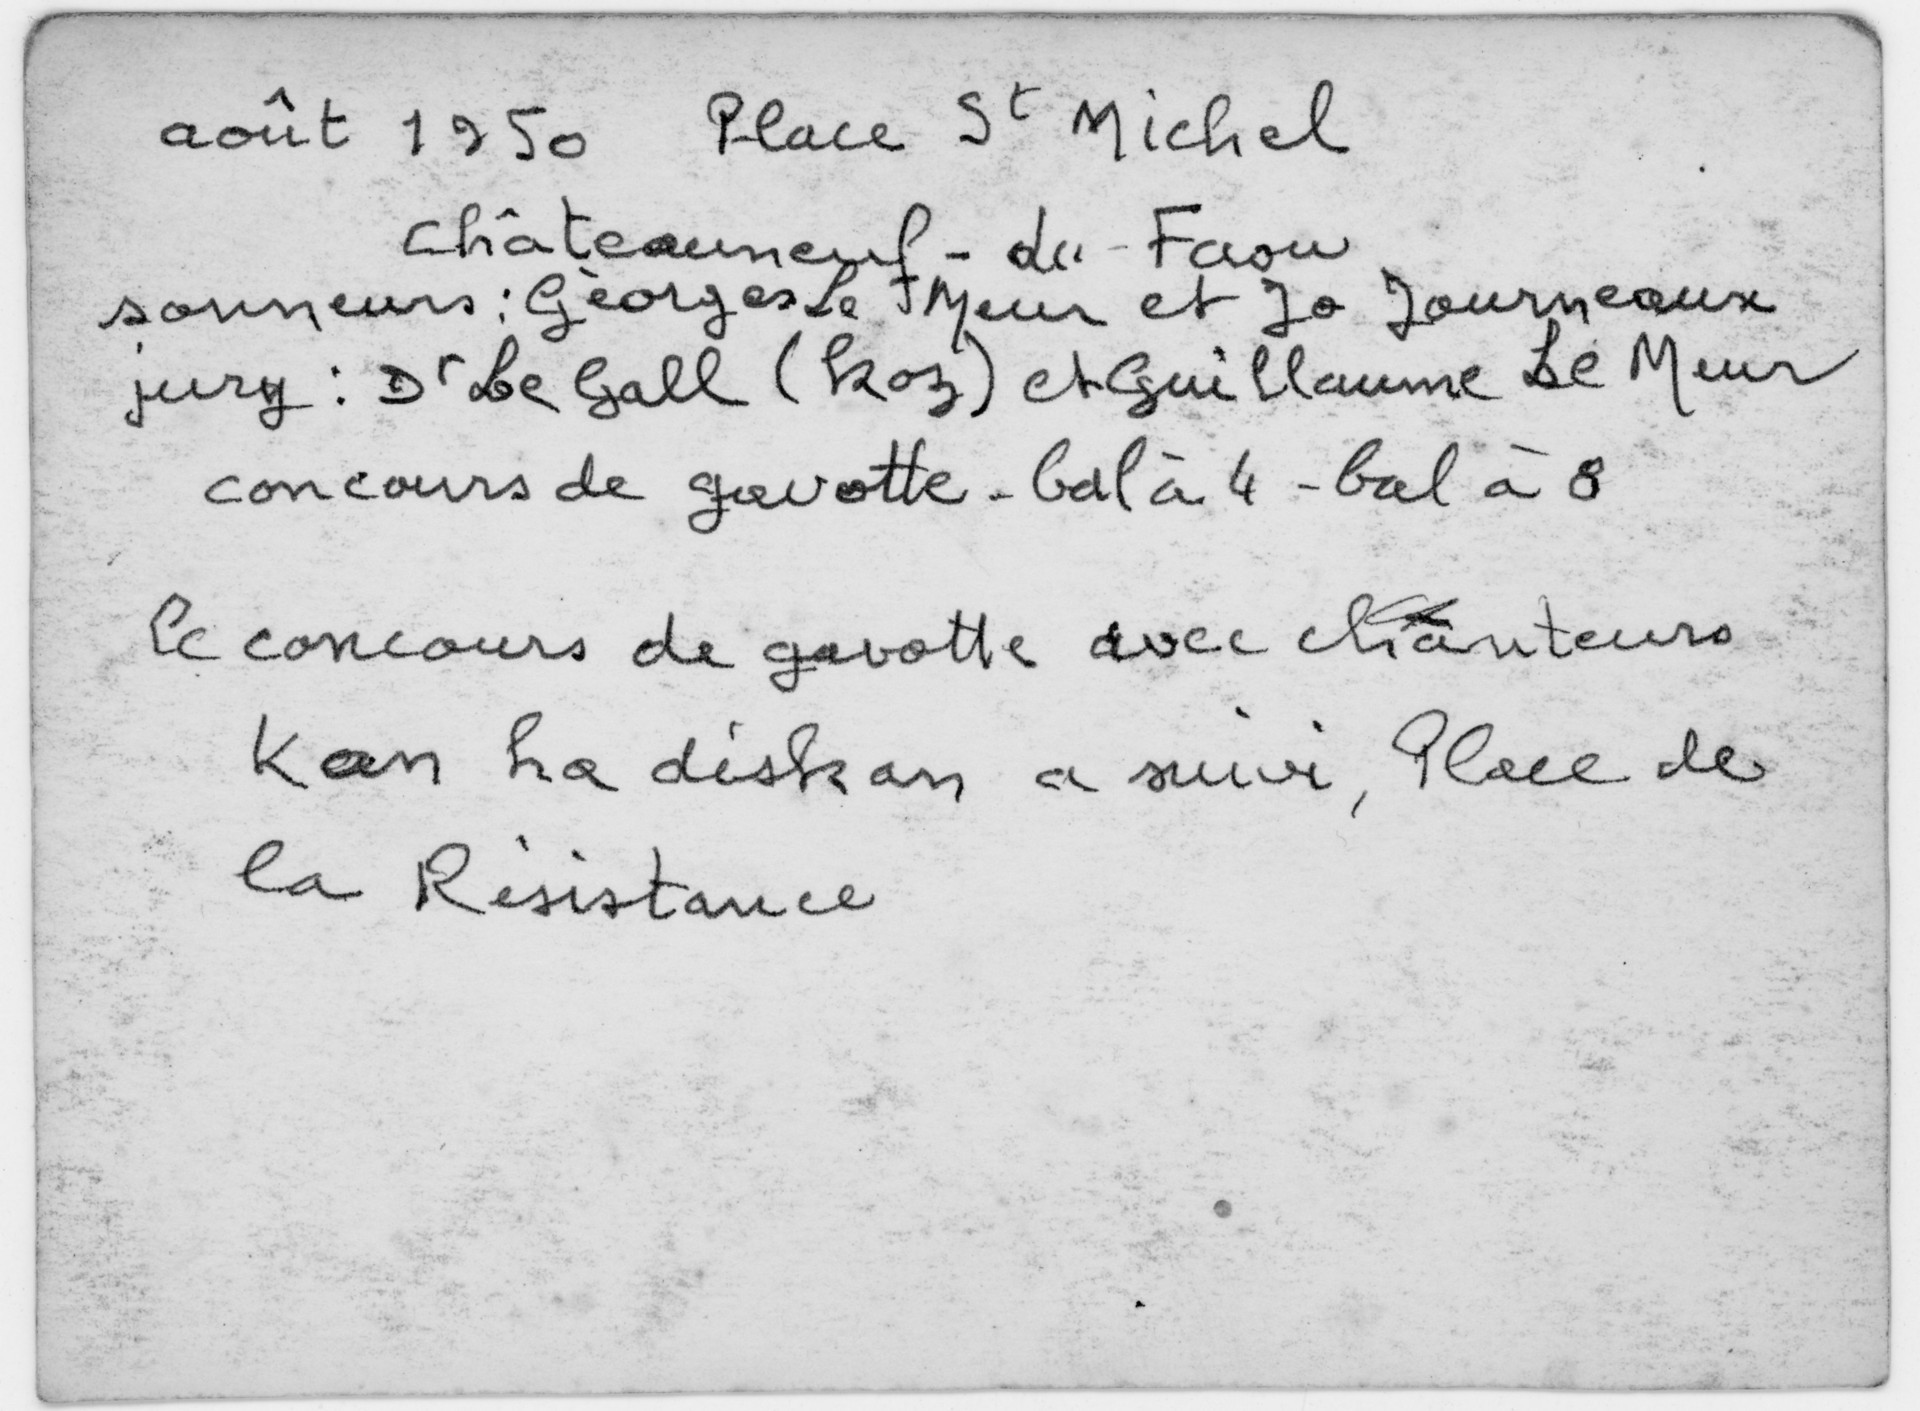 août 1950 Place St Michel
Châteauneuf-du-Faou
sonneurs : Georges Le Meur et Jo Journeaux
jury : Dr Le Gall (koz) et Guillaume Le Meur
concours de gavotte - bal à 4 - bal à 8
le concours de gavotte avec chanteurs
Kan ha diskan a suivi, Place de
la Résistance